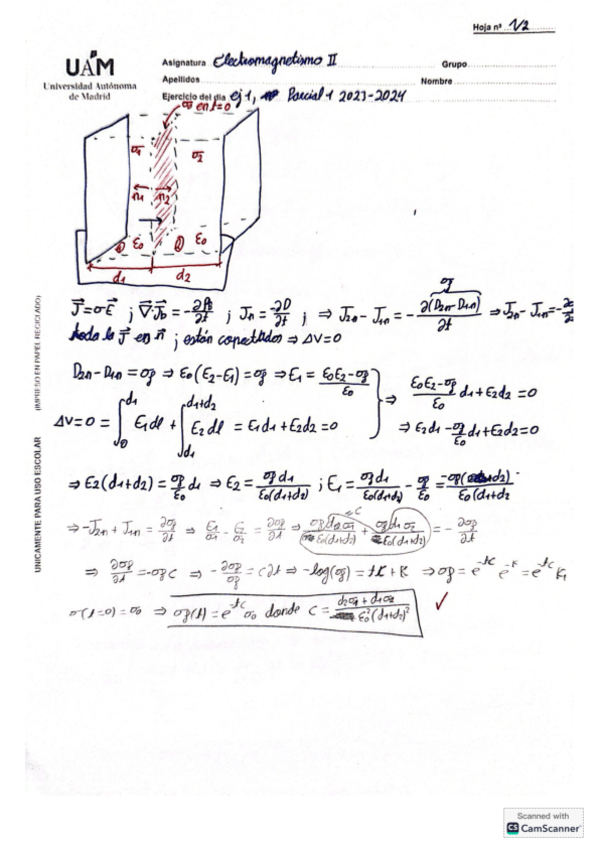 Hoja nº 1/2
UAM
Universidad Autónoma
de Madrid
Asignatura Electromagnetismo II Grupo
Apellidos Nombre
Ejercicio del día ej 1, Parcial 1 2023-2024
σ en t=0
σ1 σ2
n1 n2
① ε0 ② ε0
d1 d2
J⃗=σE⃗ ; ∇⃗·J⃗ = -∂ρ/∂t ; Jn = -∂D/∂t ; ⇒ J2n - J1n = - ∂(D2n - D1n)/∂t ⇒ J2n - J1n = -∂
toda la J⃗ en n⃗ ; están conectados ⇒ ΔV=0
D2n - D1n = σf ⇒ ε0(E2-E1) = σf ⇒ E1 = (ε0E2-σf)/ε0 ⇒ (ε0E2-σf)/ε0 d1 + E2d2 = 0
ΔV=0 = ∫0^d1 E1dl + ∫d1^d1+d2 E2dl = E1d1 + E2d2 = 0 ⇒ E2d1 - σf/ε0 d1 + E2d2 = 0
⇒ E2(d1+d2) = σf/ε0 d1 ⇒ E2 = σf d1/ε0(d1+d2) ; E1 = σf d1/ε0(d1+d2) - σf/ε0 = -σf(d2)/ε0(d1+d2
⇒ -J2n + J1n = ∂σf/∂t ⇒ E1/σ1 - E2/σ2 = ∂σf/∂t ⇒ σf d2σ1/ε0(d1+d2) + σf d1σ2/ε0(d1+d2) = -∂σf/∂t
=C
⇒ ∂σf/∂t = -σf C ⇒ -∂σf/σf = C∂t ⇒ -log(σf) = tC + K ⇒ σf = e^-tC e^-K = e^-tC K1
σ(t=0) = σ0 ⇒ σf(t) = e^-tC σ0 donde C = (d2σ1 + d1σ2)/ε0²(d1+d2)² ✓
UNICAMENTE PARA USO ESCOLAR (IMPRESO EN PAPEL RECICLADO)
Scanned with
CS CamScanner